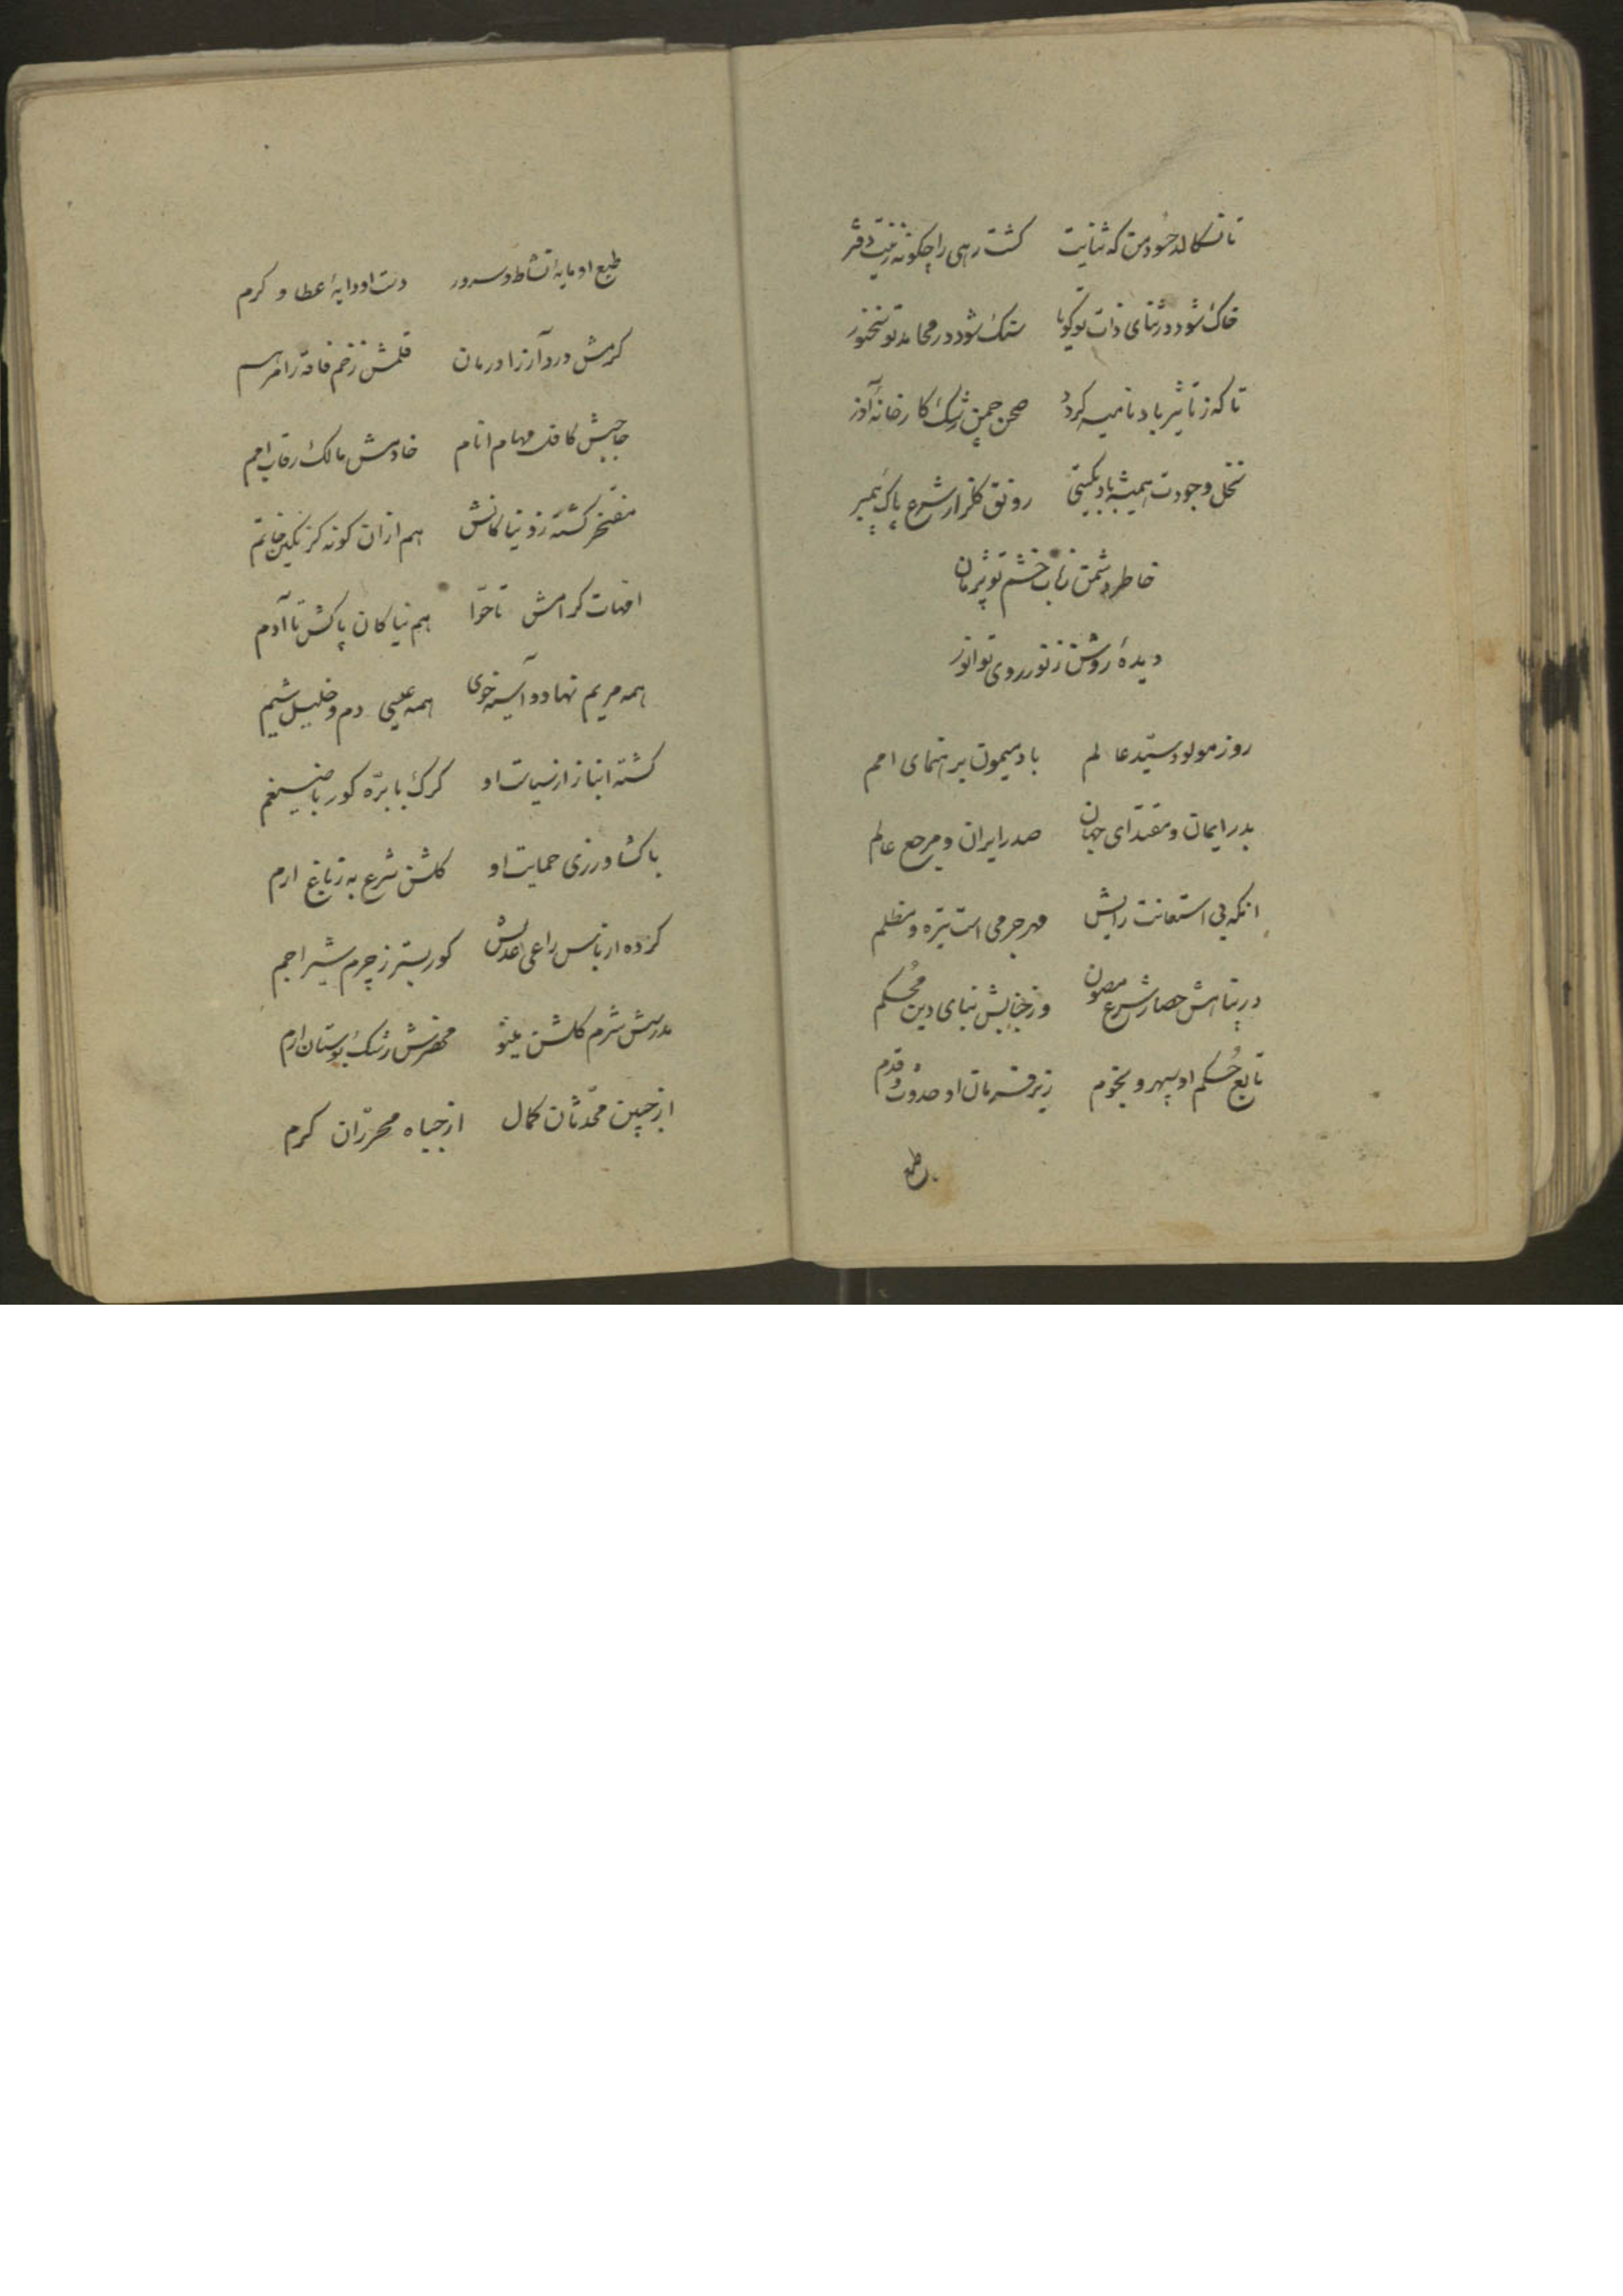 تا نسکالد حسود من که ثنایت کشت رهی را چکونه زینت دفتر
خاک شود در ثنای ذات تو کویا سنک شود در محامد تو سخنور
تا که ز تاثیر باد نامیه کردد صحن چمن رشک کارخانهٔ آذر
نخل وجودت همیشه باد بکیتی رونق کلزار شرع پاک پیمبر
خاطر دشمن ز تاب خشم تو پژمان
دیدهٔ روشن ز نور روی تو انور
روز مولود سیّد عالم باد میمون بر رهنمای امم
بدر ایمان و مقتدای جهان صدر ایران و مرجع عالم
انکه بی استعانت رایش مهر جرمی است تیره و مظلم
در پناهش حصار شرع مصون وز جنابش بنای دین محُکم
تابع حُکم او سپهر و نجوم زیر فرمان او حدوث و قدم
طبع
طبع او مایهٔ نشاط و سرور دست او دایهٔ عطا و کرم
کرمش درد آز را درمان قلمش زخم فاقه را مرهم
حاجبش کافل مهام انام خادمش مالک رقاب امم
مفتخر کشته زو نیاکانش هم از ان کونه کز نکین خاتم
امّهات کرامش تا حوّا هم نیاکان پاکش تا آدم
همه مریم نهاد و آسیه خوی همه عیسی دم و خلیل شیم
کشته انباز از سیاست او کرک با برّه کور با ضیغم
با کشاورزی حمایت او کلشن شرع به ز باغ ارم
کرده از باس راعی عدلش کور بستر ز چرم شیر اجم
مدرسش شرم کلشن مینو محضرش رشک بوستان ارم
از جبین محدّثان کمال از جباه محرّران کرم